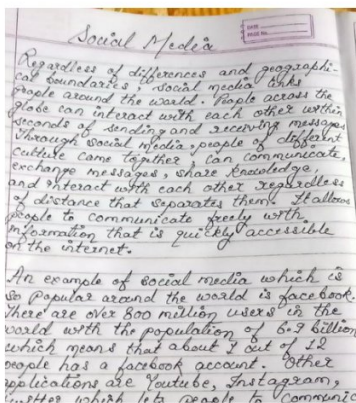 DATE
PAGE No.
Social Media
Regardless of differences and geographi-
cal boundaries, social media links
people around the world. People across the
globe can interact with each other within
seconds of sending and receiving messages
Through social media, people of different
culture came together, can communicate,
exchange messages, share knowledge,
and interact with each other regardless
of distance that separates them. It allows
people to communicate freely with
information that is quickly accessible
on the internet.
An example of social media which is
so popular around the world is facebook.
There are over 800 million users in the
world with the population of 6.9 billion
which means that about 1 out of 12
people has a facebook account. Other
applications are Youtube, Instagram,
twitter which lets people to communic